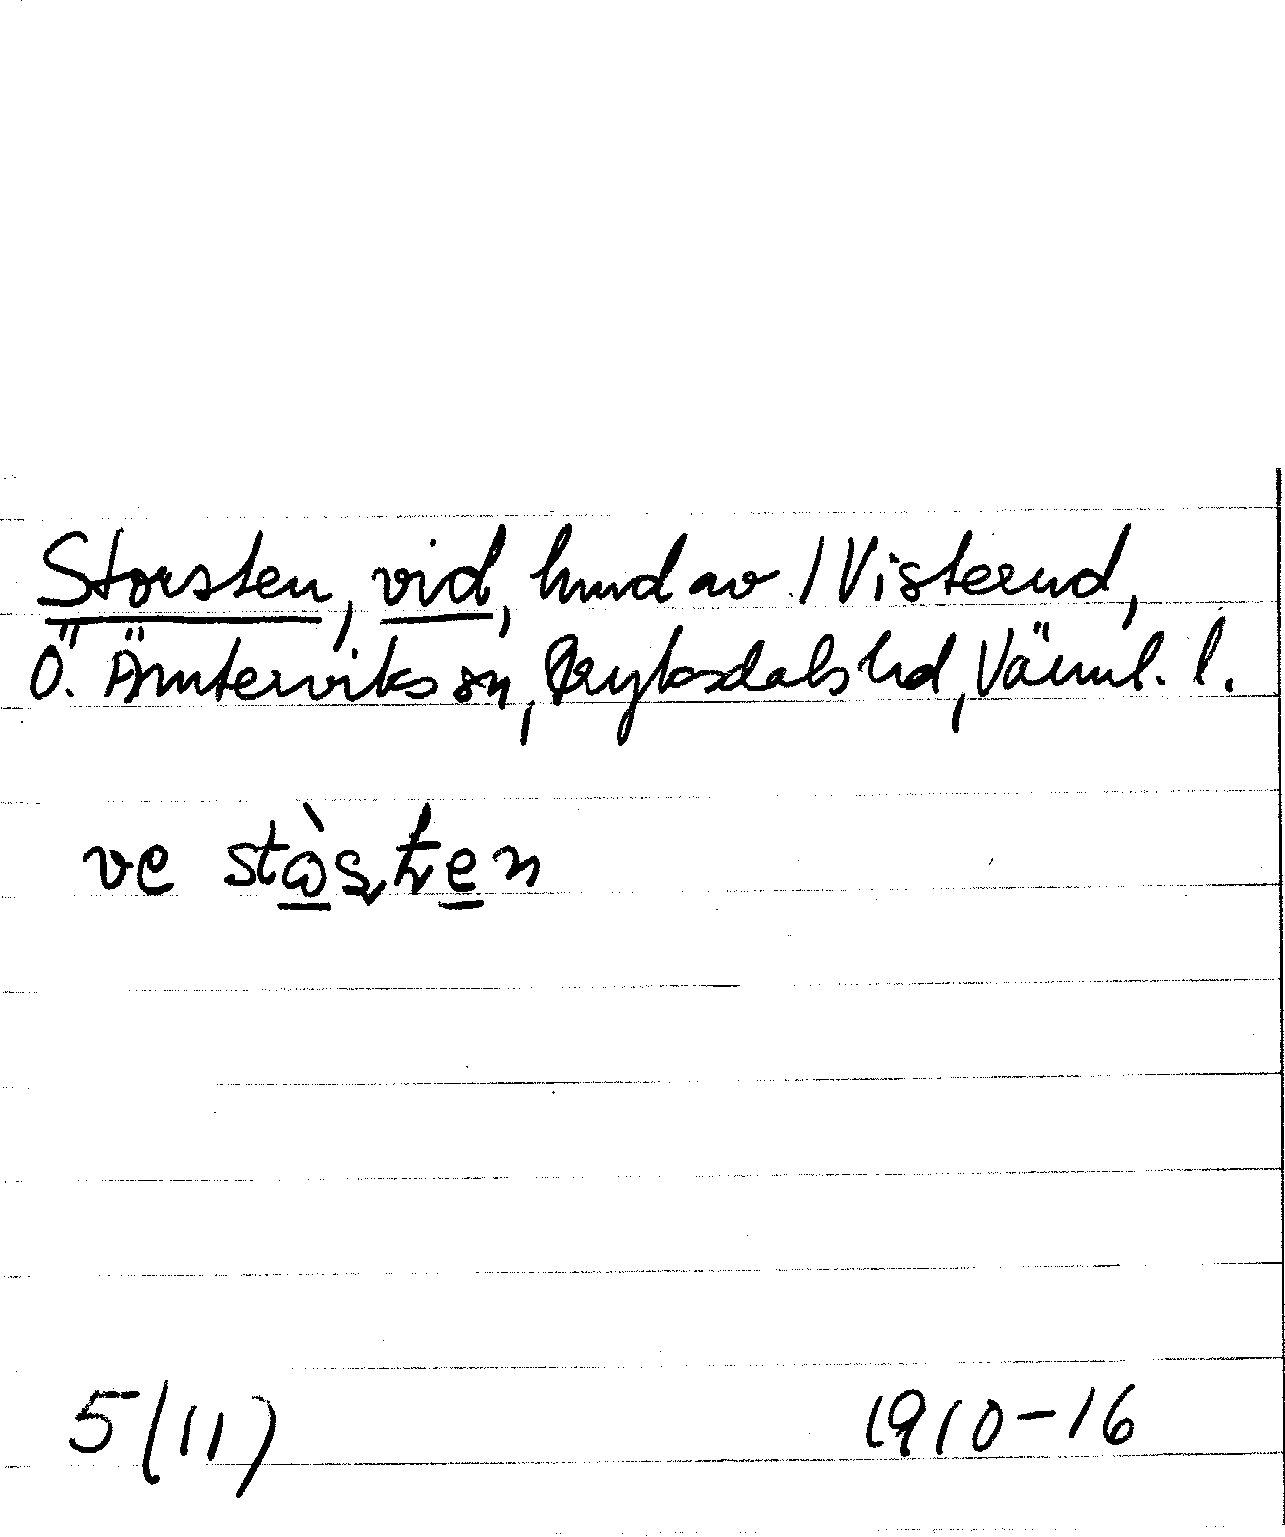 Storsten, vid, hmd av 1 Visterud,
Ö. Ämterviks sn, Fryksdals hd, Värml. l.
ve stɷ̀ʂʈen
5 (11)
1910-16